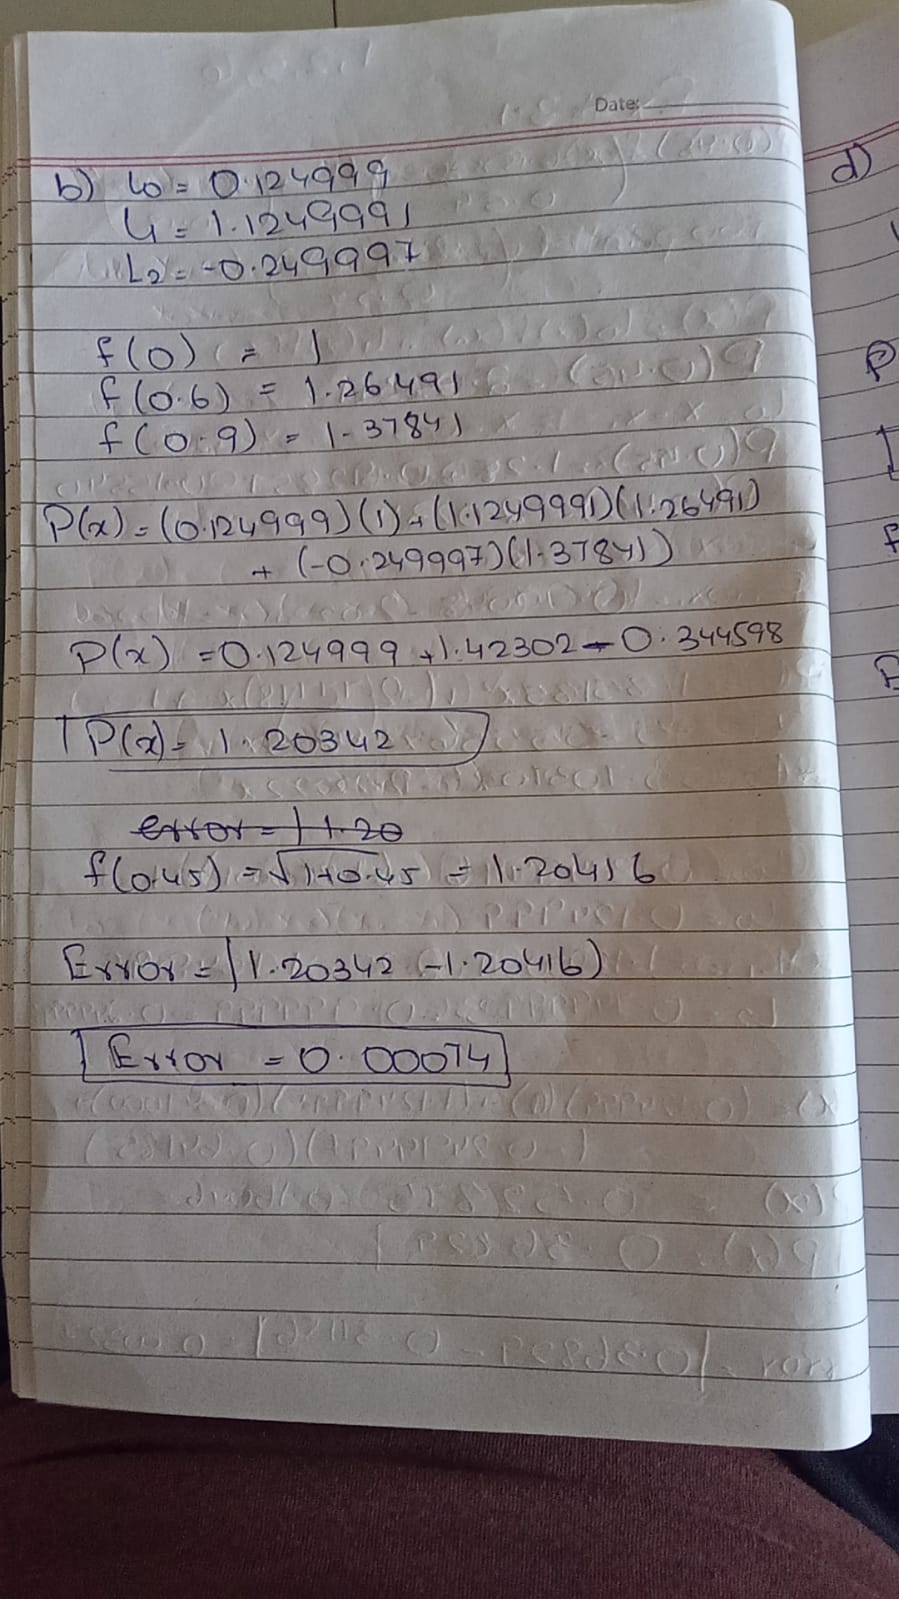 Date:
b) L0 = 0.124999
L1 = 1.1249991
L2 = -0.249997
f(0) = 1
f(0.6) = 1.26491
f(0.9) = 1.37841
P(x) = (0.124999)(1) + (1.1249991)(1.26491)
+ (-0.249997)(1.37841))
P(x) = 0.124999 + 1.42302 - 0.344598
P(x) = 1.20342
error = | 1.20
f(0.45) = √1+0.45 = 1.20416
Error = |1.20342 - 1.20416)
Error = 0.00074
d)
P
f